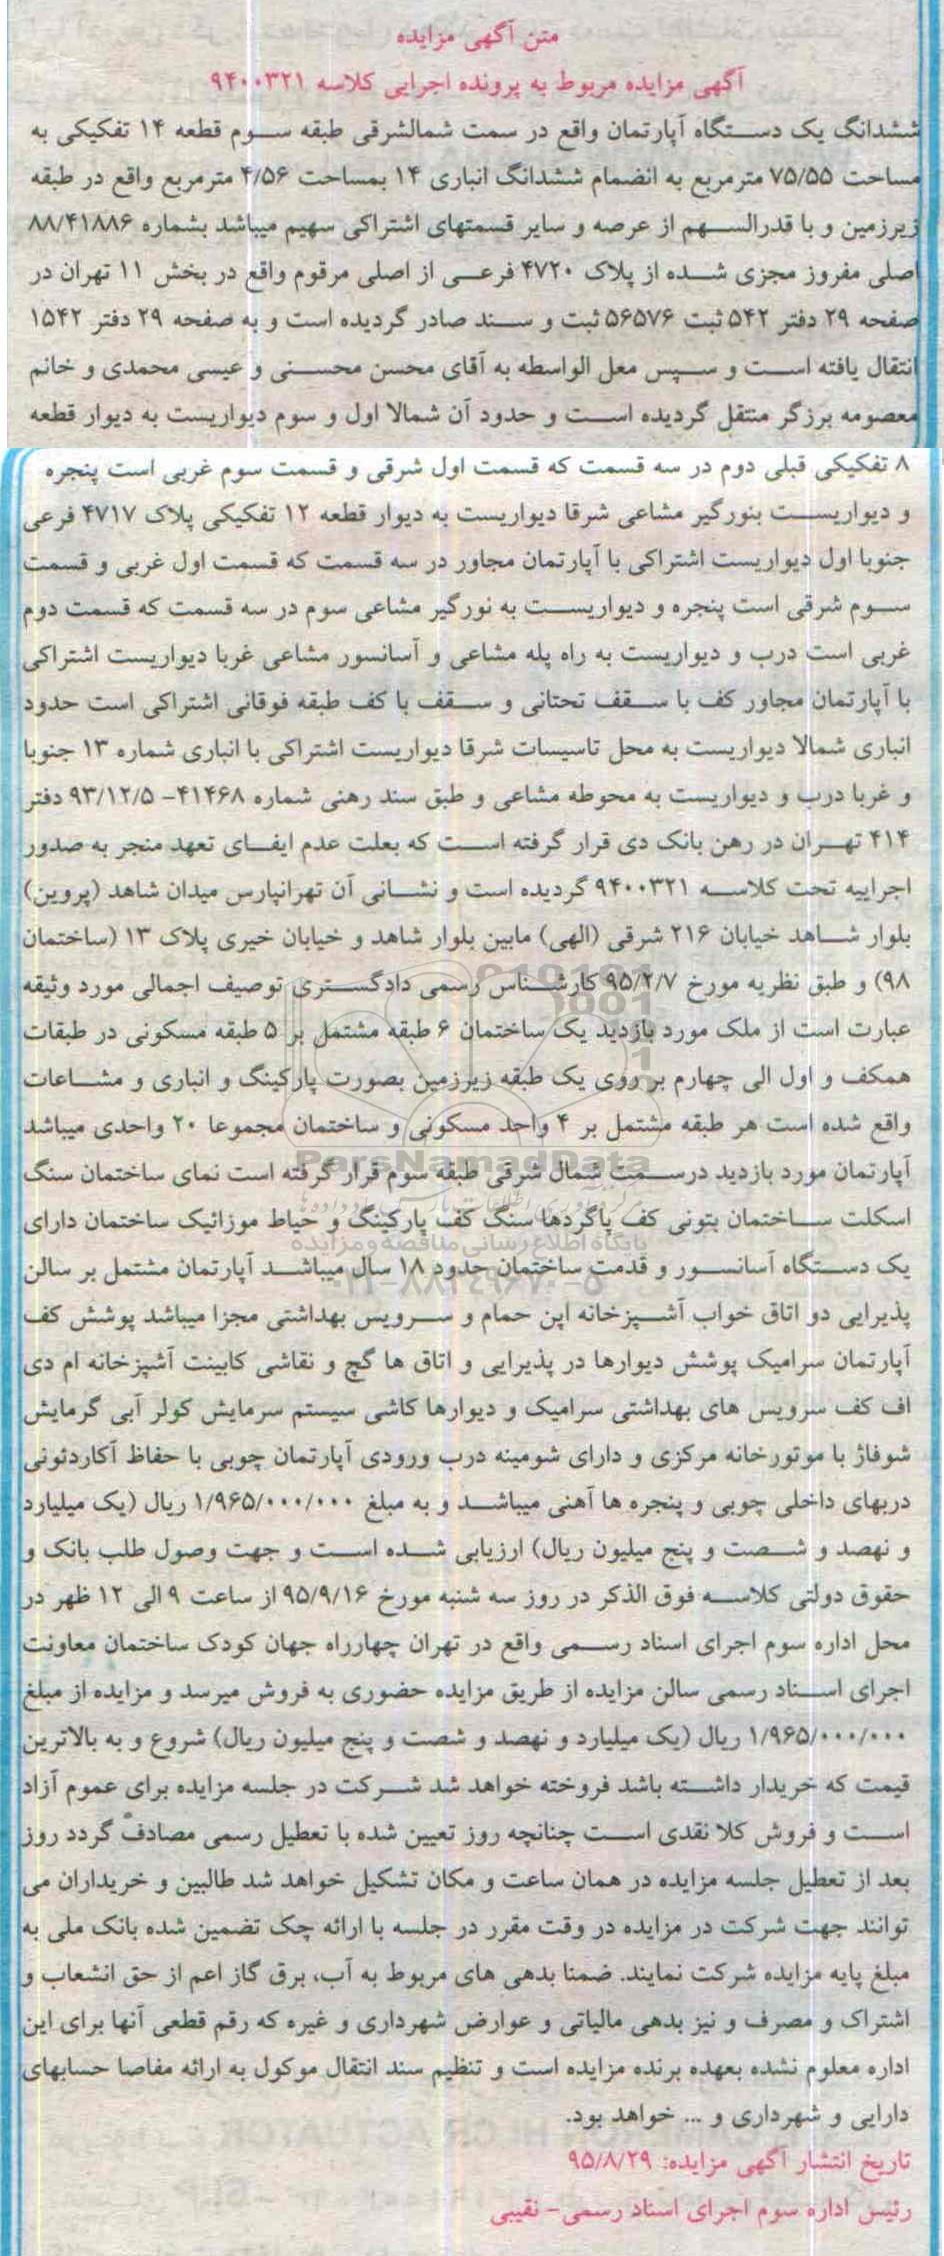 متن آگهی مزایده
آگهی مزایده مربوط به پرونده اجرایی کلاسه ۹۴۰۰۳۲۱
ششدانگ یک دستگاه آپارتمان واقع در سمت شمالشرقی طبقه سوم قطعه ۱۴ تفکیکی به
مساحت ۷۵/۵۵ مترمربع به انضمام ششدانگ انباری ۱۴ بمساحت ۴/۵۶ مترمربع واقع در طبقه
زیرزمین و با قدرالسهم از عرصه و سایر قسمتهای اشتراکی سهیم میباشد بشماره ۸۸/۴۱۸۸۶
اصلی مفروز مجزی شده از پلاک ۴۷۲۰ فرعی از اصلی مرقوم واقع در بخش ۱۱ تهران در
صفحه ۲۹ دفتر ۵۴۲ ثبت ۵۶۵۷۶ ثبت و سند صادر گردیده است و به صفحه ۲۹ دفتر ۱۵۴۲
انتقال یافته است و سپس معل الواسطه به آقای محسن محسنی و عیسی محمدی و خانم
معصومه برزگر منتقل گردیده است و حدود آن شمالا اول و سوم دیواریست به دیوار قطعه
۸ تفکیکی قبلی دوم در سه قسمت که قسمت اول شرقی و قسمت سوم غربی است پنجره
و دیواریست بنورگیر مشاعی شرقا دیواریست به دیوار قطعه ۱۲ تفکیکی پلاک ۴۷۱۷ فرعی
جنوبا اول دیواریست اشتراکی با آپارتمان مجاور در سه قسمت که قسمت اول غربی و قسمت
سوم شرقی است پنجره و دیواریست به نورگیر مشاعی سوم در سه قسمت که قسمت دوم
غربی است درب و دیواریست به راه پله مشاعی و آسانسور مشاعی غربا دیواریست اشتراکی
با آپارتمان مجاور کف با سقف تحتانی و سقف با کف طبقه فوقانی اشتراکی است حدود
انباری شمالا دیواریست به محل تاسیسات شرقا دیواریست اشتراکی با انباری شماره ۱۳ جنوبا
و غربا درب و دیواریست به محوطه مشاعی و طبق سند رهنی شماره ۴۱۴۶۸- ۹۳/۱۲/۵ دفتر
۴۱۴ تهران در رهن بانک دی قرار گرفته است که بعلت عدم ایفای تعهد منجر به صدور
اجراییه تحت کلاسه ۹۴۰۰۳۲۱ گردیده است و نشانی آن تهرانپارس میدان شاهد (پروین)
بلوار شاهد خیابان ۲۱۶ شرقی (الهی) مابین بلوار شاهد و خیابان خیری پلاک ۱۳ (ساختمان
۹۸) و طبق نظریه مورخ ۹۵/۲/۷ کارشناس رسمی دادگستری توصیف اجمالی مورد وثیقه
عبارت است از ملک مورد بازدید یک ساختمان ۶ طبقه مشتمل بر ۵ طبقه مسکونی در طبقات
همکف و اول الی چهارم بر روی یک طبقه زیرزمین بصورت پارکینگ و انباری و مشاعات
واقع شده است هر طبقه مشتمل بر ۴ واحد مسکونی و ساختمان مجموعا ۲۰ واحدی میباشد
ParsNamadData
آپارتمان مورد بازدید درسمت شمال شرقی طبقه سوم قرار گرفته است نمای ساختمان سنگ
اسکلت ساختمان بتونی کف پاگردها سنگ کف پارکینگ و حیاط موزائیک ساختمان دارای
پایگاه اطلاع رسانی مناقصه و مزایده
یک دستگاه آسانسور و قدمت ساختمان حدود ۱۸ سال میباشد آپارتمان مشتمل بر سالن
۰۲۱-۸۸۳۴۹۶۷۰-۵
پذیرایی دو اتاق خواب آشپزخانه اپن حمام و سرویس بهداشتی مجزا میباشد پوشش کف
آپارتمان سرامیک پوشش دیوارها در پذیرایی و اتاق ها گچ و نقاشی کابینت آشپزخانه ام دی
اف کف سرویس های بهداشتی سرامیک و دیوارها کاشی سیستم سرمایش کولر آبی گرمایش
شوفاژ با موتورخانه مرکزی و دارای شومینه درب ورودی آپارتمان چوبی با حفاظ آکاردئونی
دربهای داخلی چوبی و پنجره ها آهنی میباشد و به مبلغ ۱/۹۶۵/۰۰۰/۰۰۰ ریال (یک میلیارد
و نهصد و شصت و پنج میلیون ریال) ارزیابی شده است و جهت وصول طلب بانک و
حقوق دولتی کلاسه فوق الذکر در روز سه شنبه مورخ ۹۵/۹/۱۶ از ساعت ۹ الی ۱۲ ظهر در
محل اداره سوم اجرای اسناد رسمی واقع در تهران چهارراه جهان کودک ساختمان معاونت
اجرای اسناد رسمی سالن مزایده از طریق مزایده حضوری به فروش میرسد و مزایده از مبلغ
۱/۹۶۵/۰۰۰/۰۰۰ ریال (یک میلیارد و نهصد و شصت و پنج میلیون ریال) شروع و به بالاترین
قیمت که خریدار داشته باشد فروخته خواهد شد شرکت در جلسه مزایده برای عموم آزاد
است و فروش کلا نقدی است چنانچه روز تعیین شده با تعطیل رسمی مصادف گردد روز
بعد از تعطیل جلسه مزایده در همان ساعت و مکان تشکیل خواهد شد طالبین و خریداران می
توانند جهت شرکت در مزایده در وقت مقرر در جلسه با ارائه چک تضمین شده بانک ملی به
مبلغ پایه مزایده شرکت نمایند. ضمنا بدهی های مربوط به آب، برق گاز اعم از حق انشعاب و
اشتراک و مصرف و نیز بدهی مالیاتی و عوارض شهرداری و غیره که رقم قطعی آنها برای این
اداره معلوم نشده بعهده برنده مزایده است و تنظیم سند انتقال موکول به ارائه مفاصا حسابهای
دارایی و شهرداری و ... خواهد بود.
تاریخ انتشار آگهی مزایده: ۹۵/۸/۲۹
رئیس اداره سوم اجرای اسناد رسمی- نقیبی